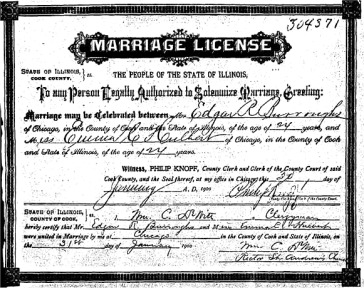 304371
MARRIAGE LICENSE
STATE OF ILLINOIS, COOK COUNTY. } ss. THE PEOPLE OF THE STATE OF ILLINOIS,
To any Person Legally Authorized to Solemnize Marriage, Greeting:
Marriage may be Celebrated between Mr. Edgar R. Burroughs
of Chicago, in the County of Cook and the State of Illinois, of the age of 24 years, and
Miss Emma C. Hulbert of Chicago, in the County of Cook
and State of Illinois, of the age of 24 years.
Witness, PHILIP KNOPF, County Clerk and Clerk of the County Court of said
Cook County, and the Seal thereof, at my office in Chicago this
January A.D., 1900
STATE OF ILLINOIS, COUNTY OF COOK. } ss. I, Wm. C. Clergyman
hereby certify that Mr. Edgar R. Burroughs and Miss Emma
were united in Marriage by me at Chicago in the County of Cook and State of Illinois, on
the 31st day of January 1900 Wm C.
Rector St.